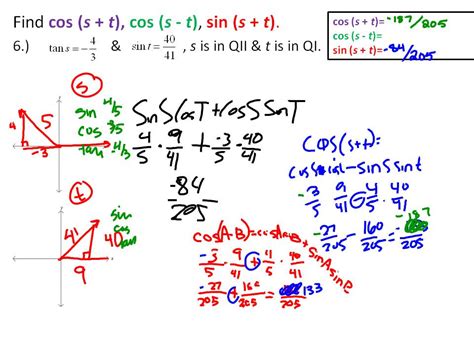 Find cos (s + t), cos (s - t), sin (s + t).
6.) tan s = -4/3 & sin t = 40/41 , s is in QII & t is in QI.
cos (s + t)= -187/205
cos (s - t)=
sin (s + t)= -84/205
s
4
5
-3
sin 4/5
cos 3/5
tan -4/3
t
41
40
9
sin
cos
tan
SinSCosT+CosSSinT
4/5 · 9/41 + -3/5 · 40/41
-84/205
COS(s+t)=
-sinssint
-3/5 9/41 - 4/5 · 40/41
-27/205 - 160/205 = -187/205
cos(A-B)=cosAcosB+sinAsinB
-3/5 · 9/41 + 4/5 · 40/41
-27/205 + 160/205 = 133